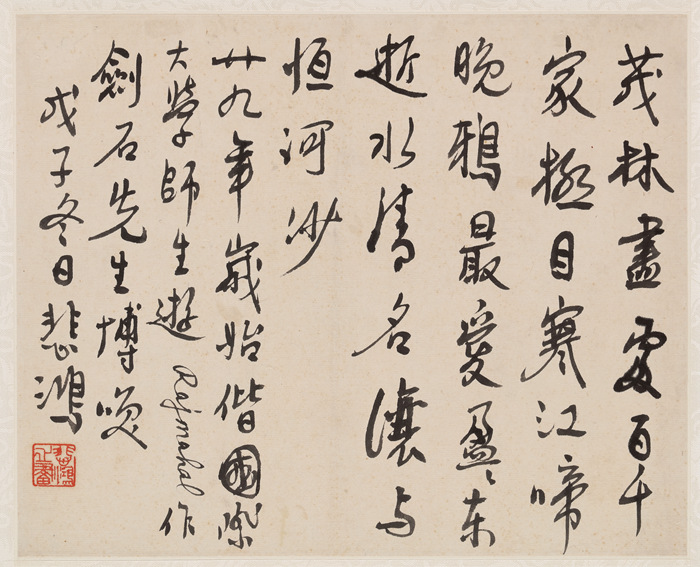 茂林盡處百千
家極目寒江啼
晚鴉最愛盈盈東
逝水清名讓与
恒河沙
廿九年歲始偕國際
大學師生遊Rajmahal作
劍石先生博喚
戊子冬日悲鴻